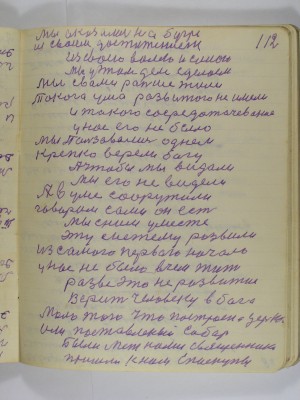 112
Мы оказались на бугре
и своим достижением
Из своего
мы этим делом сделали
Мы свами раньше жили
Такого ума развитого не имели
и такого сосредоточевание
у нас его не было
мы ползовалис одном
Крепко верели багу
А чтобы мы видали
мы его не видели
А в уме соорудили
гаварам сами он ест
мы с ним уместе
эту систему развили
из самого первого начало
у нас не было в чем жит
разве это не развитие
Верит человеку в бога
Мало того что построено церкви
или поставленый собор
Были меж нами священника
пришли к нам